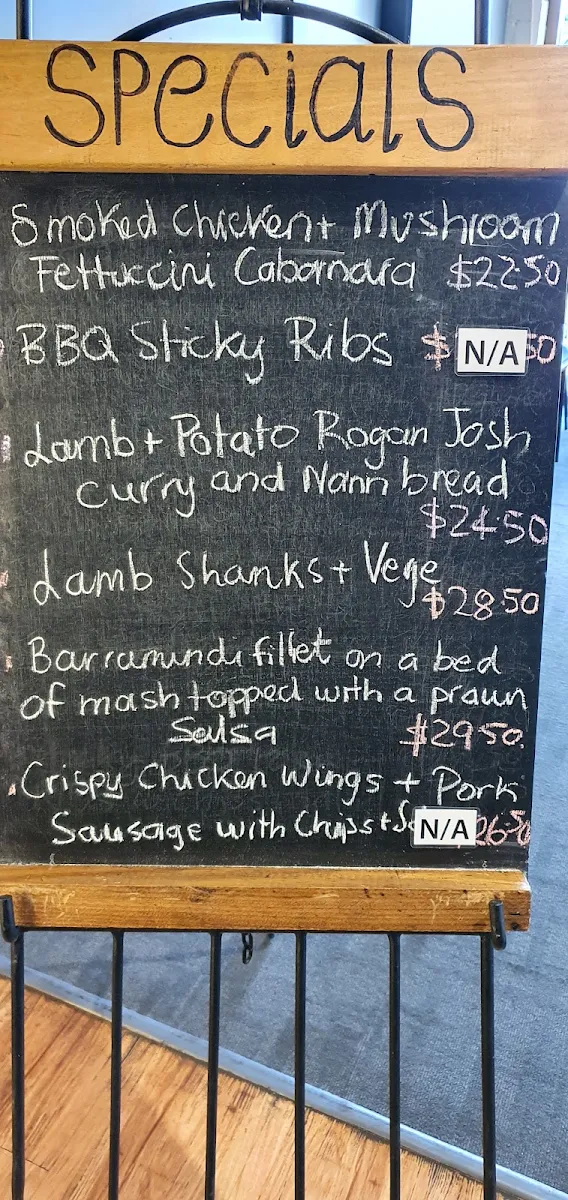 Specials
Smoked Chicken + Mushroom
Fettuccini Cabornara $22.50
BBQ Sticky Ribs $ N/A 50
Lamb + Potato Rogan Josh
curry and Nann bread
$24.50
Lamb Shanks + Vege
$28.50
Barramundi fillet on a bed
of mash topped with a prawn
Salsa $29.50
Crispy Chicken Wings + Pork
Sausage with Chips + N/A 26.50